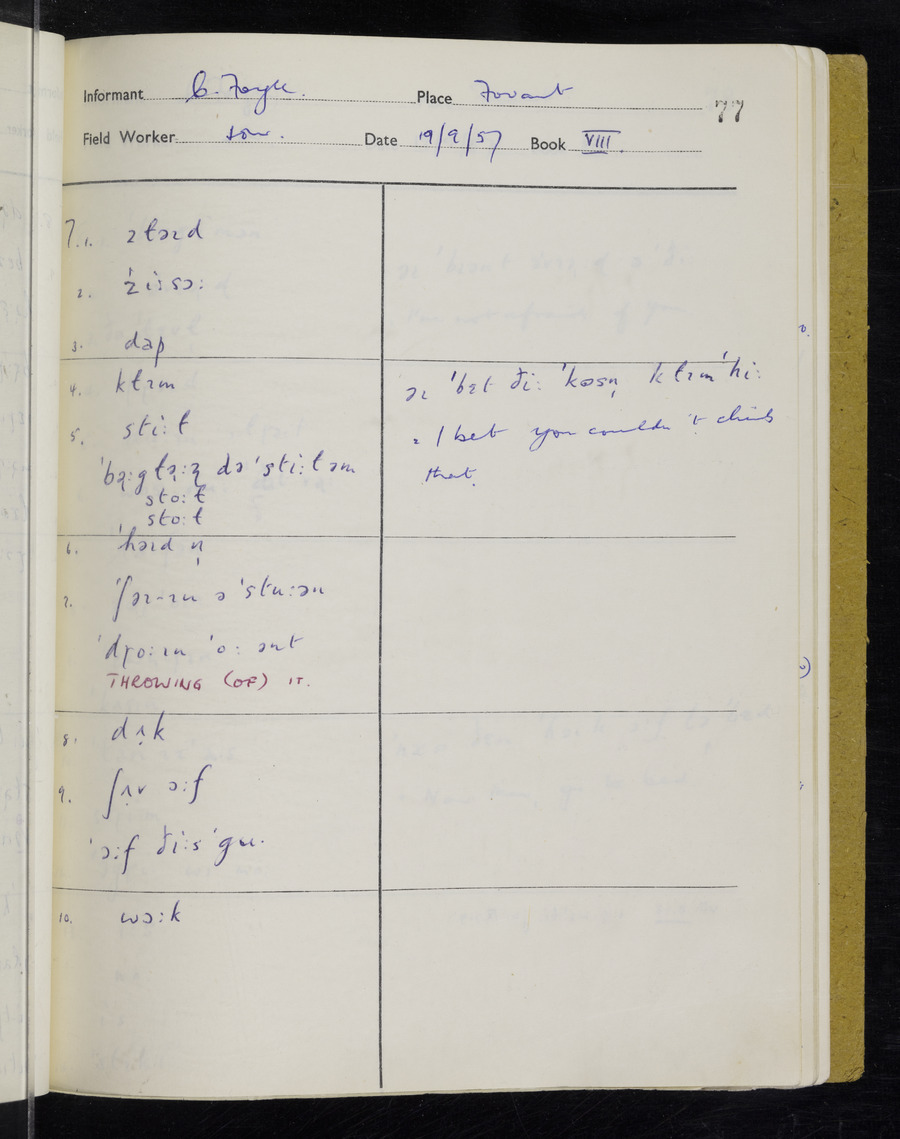 Informant C. Foyle. Place Fovant 77
Field Worker Date 19/9/57 Book VIII.
7.1. ztəɪd
2. ˈzɪːsɔː
3. dap
4. klɪm
5. stiːl
ˈbɑːgləːz də ˈstiːl əm
stoːl
stoːl
6. ˈhəɪd n̩
7. ˈʃəɪ-ɪn ə ˈstuːən
ˈdɹoːɪn ˈoː ənt
THROWING (OF) IT.
8. dʌk
9. ʃʌv ɔːf
ˈɔːf ðiːs ˈgu.
10. wɔːk
əɪ ˈbɛt ðiː ˈkəsn̩ klɪm ˈhiː
= I bet you couldn't climb
that.